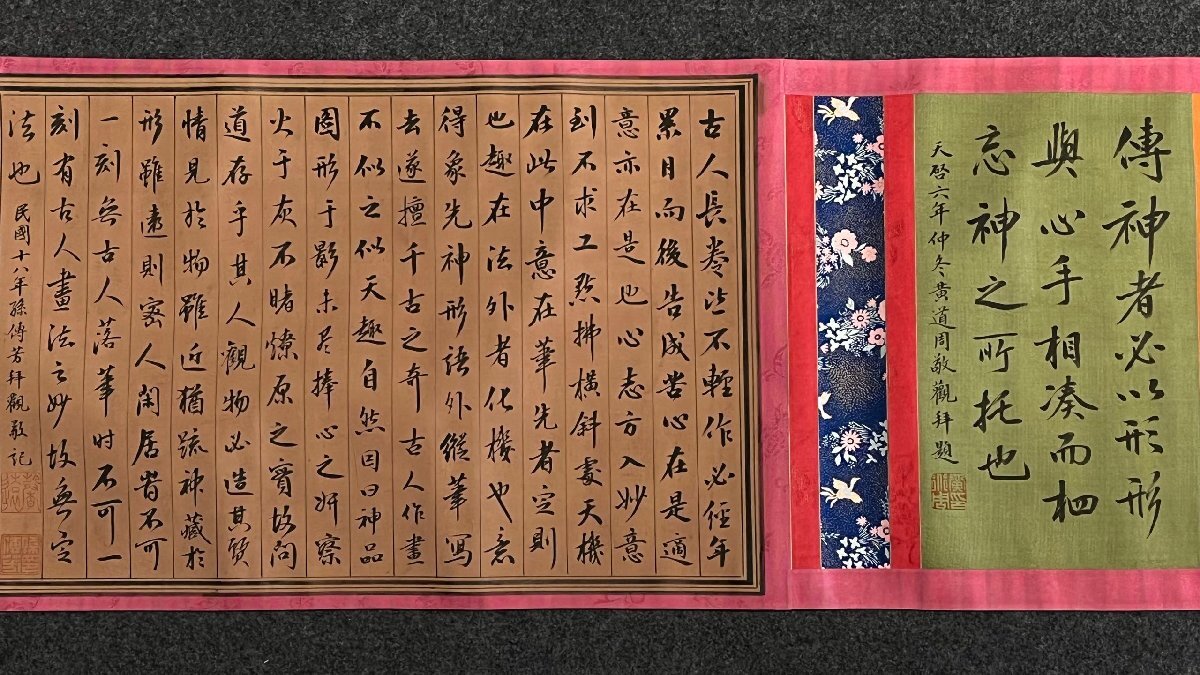 傳神者必以形形
與心手相湊而相
忘神之所托也
天啓六年仲冬黄道周敬觀拜題
古人長卷皆不輕作必經年
累月而後告成苦心在是適
意亦在是也心志方入妙意
到不求工點拂橫斜處天機
在此中意在筆先者定則
也趣在法外者化機也意
得象先神形語外縱筆寫
去遂擅千古之奇古人作畫
不似之似天趣自然因曰神品
圖形于影未盡捧心之妍察
火于灰不睹燎原之實故問
道存乎其人觀物必造其質
情見於物雖近猶疏神藏於
形雖遠則密人閑居皆不可
一刻無古人落筆時不可一
刻有古人畫法之妙故無定
法也
民國十八年孫傳芳拜觀敬記